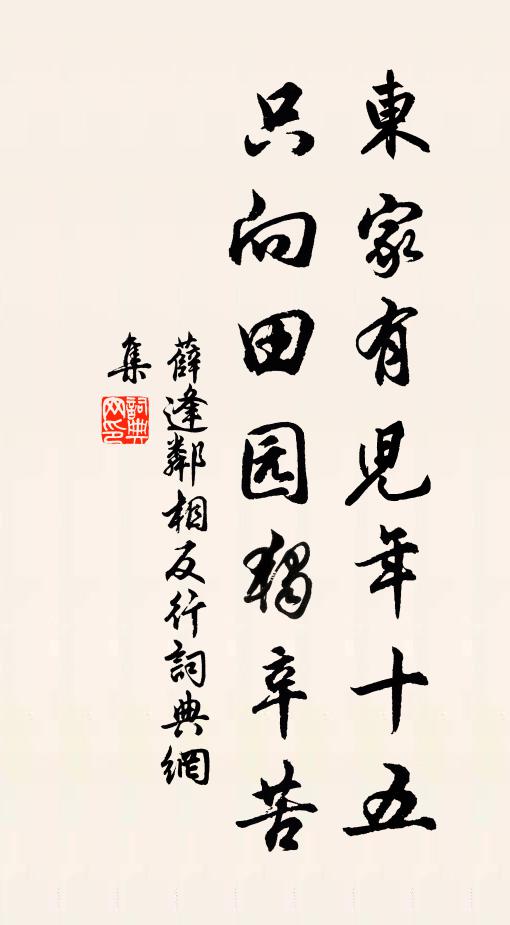 東家有兒年十五
只向田园獨辛苦
薛逢鄰相反行詞典網
集
詞典网印